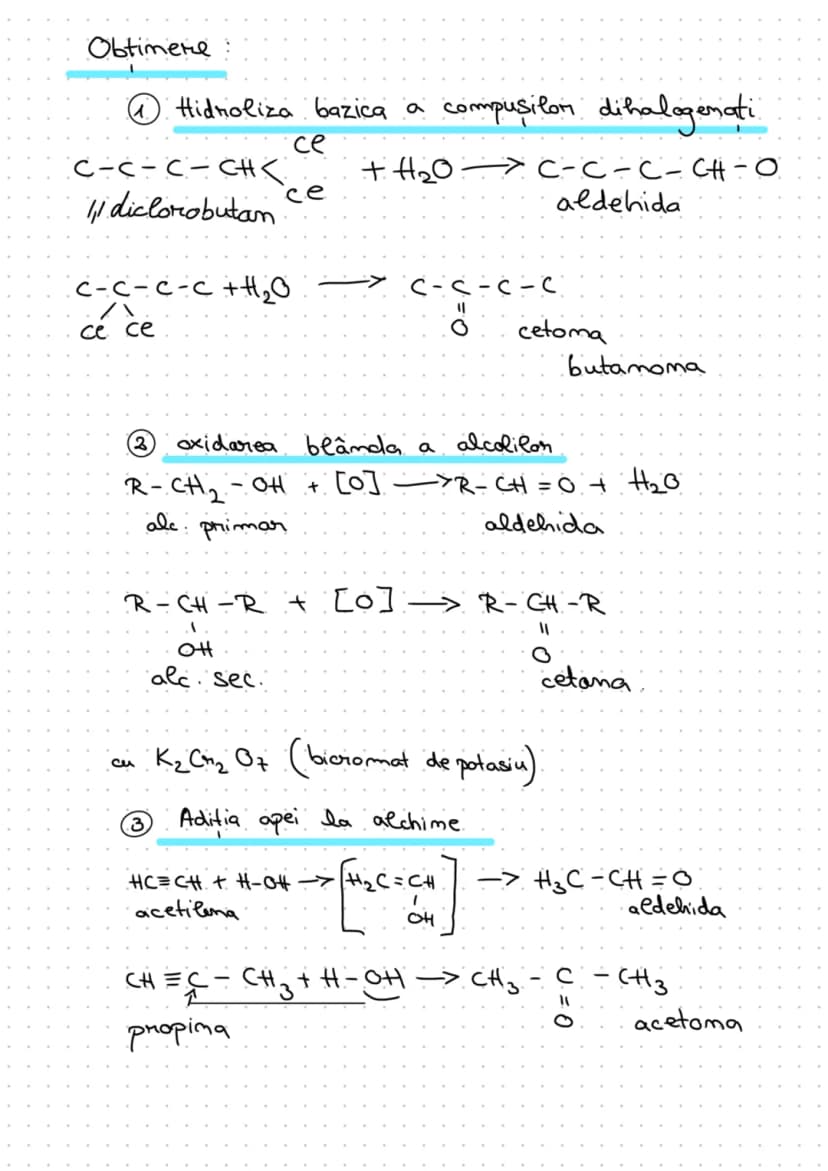 Obținere :
① Hidroliza bazica a compușilor dihalogenați
C-C-C-CH< Cl Cl + H₂O → C-C-C-CH-O
1,1 diclorobutan aldehida
C-C-C-C + H₂O → C-C-C-C
Cl Cl O cetona
butanona
② oxidarea blânda a alcolilor
R-CH₂-OH + [O] → R-CH=O + H₂O
alc. primar aldehida
R-CH-R + [O] → R-CH-R
OH O
alc. sec. cetona.
cu K₂Cr₂O₇ (bicromat de potasiu)
③ Adiția apei la alchine
HC≡CH + H-OH → [H₂C=CH OH] → H₃C-CH=O
acetilena aldehida
CH≡C-CH₃ + H-OH → CH₃-C-CH₃
O
propina acetona